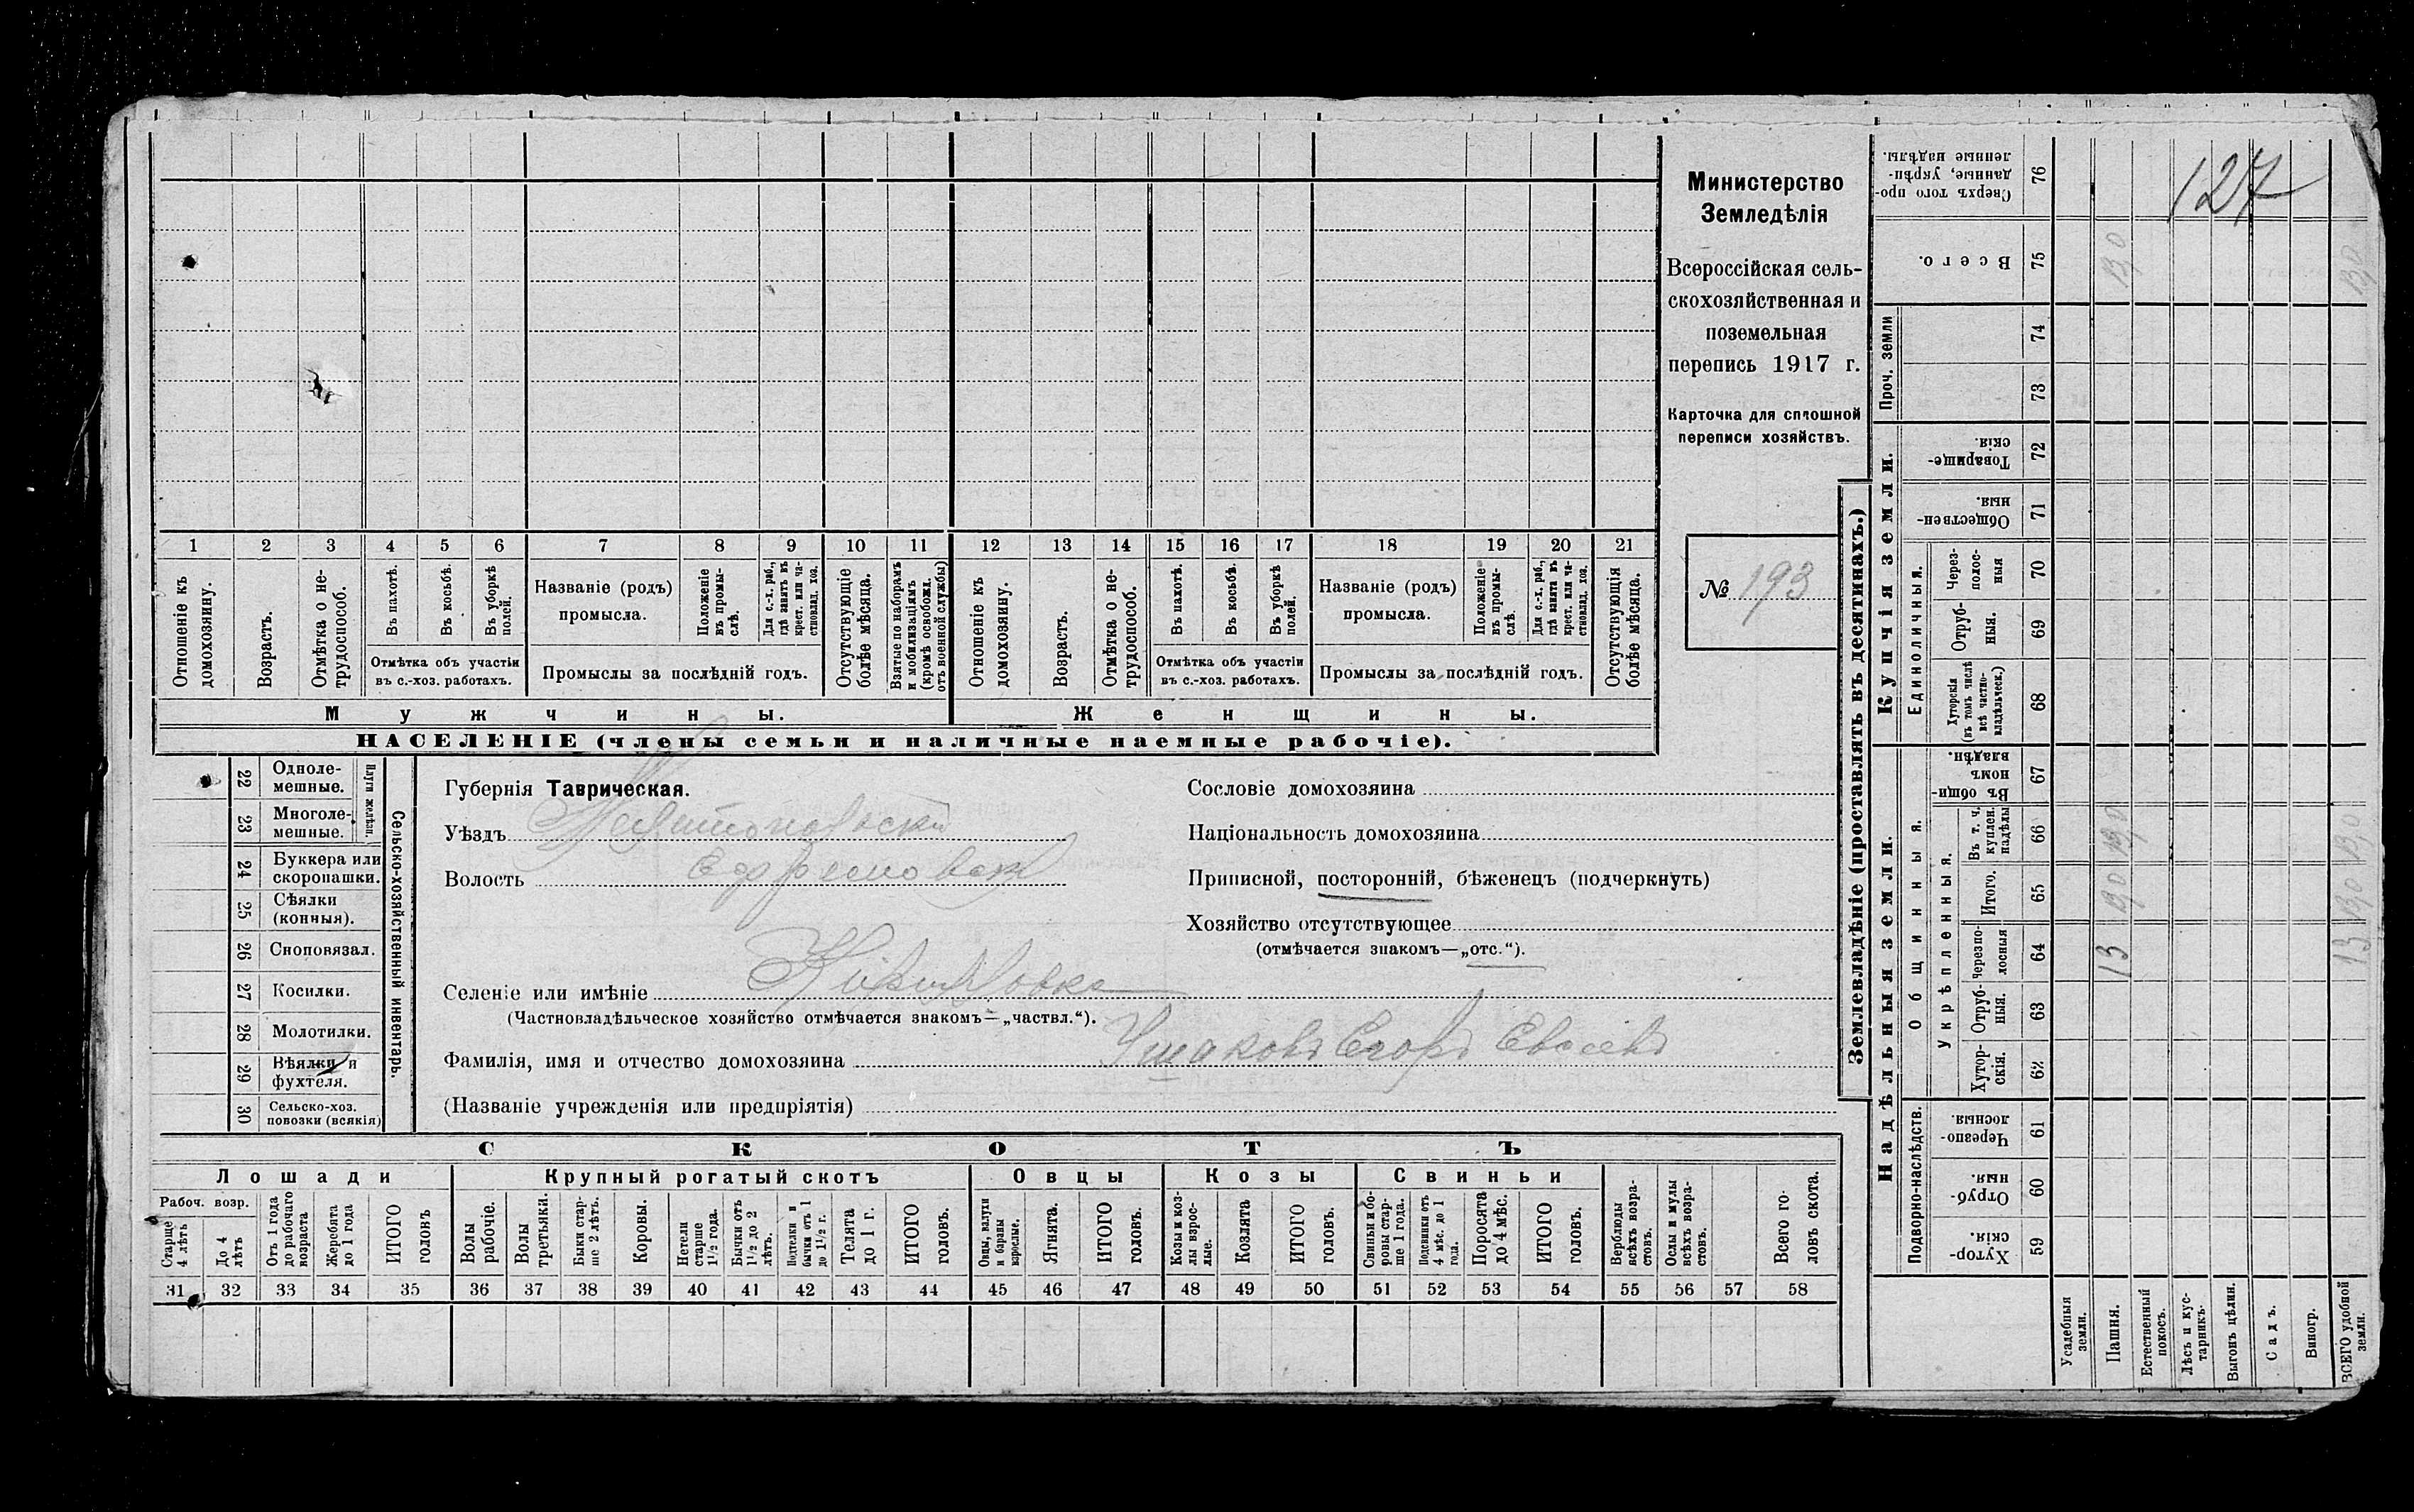 Министерство
Земледѣлія
Всероссійская сель-
скохозяйственная и
поземельная
перепись 1917 г.
Карточка для сплошной
переписи хозяйствъ.
№ 193
127
1 2 3 4 5 6 7 8 9 10 11 12 13 14 15 16 17 18 19 20 21
Отношеніе къ домохозяину.
Возрастъ.
Отмѣтка о не-
трудоспособ.
Въ пахотѣ.
Въ косьбѣ.
Въ уборкѣ
полей.
Отмѣтка объ участіи
въ с.-хоз. работахъ.
Названіе (родъ)
промысла.
Положеніе
въ промы-
слѣ.
Для с.-х. раб.,
гдѣ занятъ въ
крест. или ча-
стновлад. хоз.
Промыслы за послѣдній годъ.
Отсутствующіе
болѣе мѣсяца.
Взятые по наборамъ
и мобилизаціямъ
(кромѣ освобожд.
отъ военной службы)
Отношеніе къ
домохозяину.
Возрастъ.
Отмѣтка о не-
трудоспособ.
Въ пахотѣ.
Въ косьбѣ.
Въ уборкѣ
полей.
Отмѣтка объ участіи
въ с.-хоз. работахъ.
Названіе (родъ)
промысла.
Положеніе
въ промы-
слѣ.
Для с.-х. раб.,
гдѣ занята въ
крест. или ча-
стновлад. хоз.
Промыслы за послѣдній годъ.
Отсутствующія
болѣе мѣсяца.
Мужчины.
Женщины.
НАСЕЛЕНІЕ (члены семьи и наличные наемные рабочіе).
22 Одноле-
мешные.
23 Многоле-
мешные.
Плуги желѣзн.
24 Буккера или
скоропашки.
25 Сѣялки
(конныя).
26 Сноповязал.
27 Косилки.
28 Молотилки.
29 Вѣялки и
фухтеля.
30 Сельско-хоз.
повозки (всякія)
Сельско-хозяйственный инвентарь.
Губернія Таврическая.
Уѣздъ Мелитопольскій
Волость Ефремовск
Селеніе или имѣніе Кирилловка
(Частновладѣльческое хозяйство отмѣчается знакомъ—„частвл.“).
Фамилія, имя и отчество домохозяина Ушаковъ Егоръ Евсеевъ
(Названіе учрежденія или предпріятія)
Сословіе домохозяина
Національность домохозяина
Приписной, посторонній, бѣженецъ (подчеркнуть)
Хозяйство отсутствующее
(отмѣчается знакомъ—„отс.“).
СКОТЪ
Лошади
Крупный рогатый скотъ
Овцы
Козы
Свиньи
Рабоч. возр.
Старше
4 лѣтъ
До 4
лѣтъ
Отъ 1 года
до рабочаго
возраста
Жеребята
до 1 года
ИТОГО
головъ
Волы
рабочіе.
Волы
третьяки.
Быки стар-
ше 2 лѣтъ.
Коровы.
Нетели
старше
1½ года.
Бычки отъ
1½ до 2
лѣтъ.
Подтелки и
бычки отъ 1
до 1½ г.
Телята
до 1 г.
ИТОГО
головъ.
Овцы, валухи
и бараны
взрослые.
Ягнята.
ИТОГО
головъ.
Козы и коз-
лы взрос-
лые.
Козлята
ИТОГО
головъ.
Свиньи и бо-
ровы стар-
ше 1 года.
Подсвинки отъ
4 мѣс. до 1
года.
Поросята
до 4 мѣс.
ИТОГО
головъ.
Верблюды
всѣхъ возра-
стовъ.
Ослы и мулы
всѣхъ возра-
стовъ.
Всего го-
ловъ скота.
31 32 33 34 35 36 37 38 39 40 41 42 43 44 45 46 47 48 49 50 51 52 53 54 55 56 57 58
Землевладѣніе (проставлять въ десятинахъ.)
Сверхъ того про-
данные, укрѣп-
ленные надѣлы.
76
Всего.
75
13,0
13,0
Проч. земли
74
73
Купчія земли.
Товарище-
скія.
72
Обществен-
ныя
71
Единоличныя.
Через-
полос-
ныя
70
Отруб-
ныя.
69
Хуторскія
(въ томъ числѣ
всѣ частно-
владѣльческ.)
68
Надѣльныя земли.
Общинныя.
Въ общин-
номъ
владѣн.
67
Укрѣпленныя.
Въ т. ч.
куплен.
надѣлы
66
13,0
13,0
Итого.
65
13,0
13,0
Черезпо-
лосныя
64
13
13
Отруб-
ныя.
63
Хутор-
скія.
62
Подворно-наслѣдств.
Черезпо-
лосныя.
61
Отруб-
ныя.
60
Хутор-
скія.
59
Усадебныя
земли.
Пашня.
Естественный
покосъ.
Лѣсъ и кус-
тарникъ.
Выгонъ цѣлин.
Садъ.
Виногр.
ВСЕГО удобной
земли.